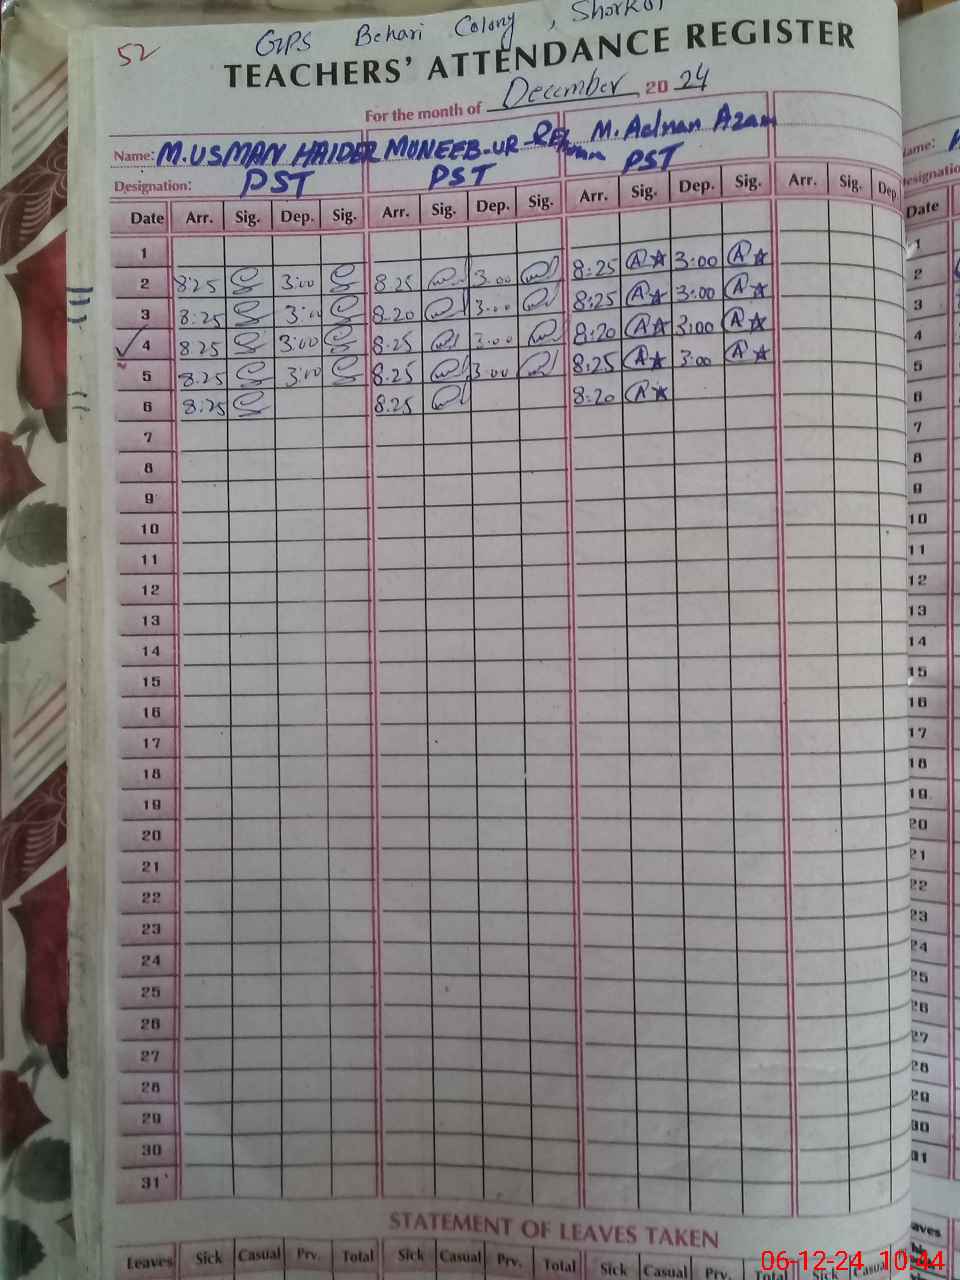 52
GPS Behari Colony, Shorkot
TEACHERS' ATTENDANCE REGISTER
For the month of December 2024
Name: M.USMAN HAIDER MUNEEB-UR-REHMAN M. Adnan Azam
Designation: PST PST PST
Date Arr. Sig. Dep. Sig. Arr. Sig. Dep. Sig. Arr. Sig. Dep. Sig. Arr. Sig. Dep
1
2 8:25 3:00 8.25 3:00 8:25 A★ 3:00 A★
3 8:25 3:00 8.20 3:00 8:25 A★ 3:00 A★
4 8:25 3:00 8:25 3:00 8:20 A★ 3:00 A★
5 8:25 3:00 8.25 3:00 8:25 A★ 3:00 A★
6 8:25 8.25 8:20 A★
7
8
9
10
11
12
13
14
15
16
17
18
19
20
21
22
23
24
25
26
27
28
29
30
31
STATEMENT OF LEAVES TAKEN
Leaves Sick Casual Prv. Total Sick Casual Prv. Total Sick Casual Prv. Total Sick Casual
ame:
esignatio
Date
1
2
3
4
5
6
7
8
9
10
11
12
13
14
15
16
17
18
19
20
21
22
23
24
25
26
27
28
29
30
31
aves
06-12-24 10:44